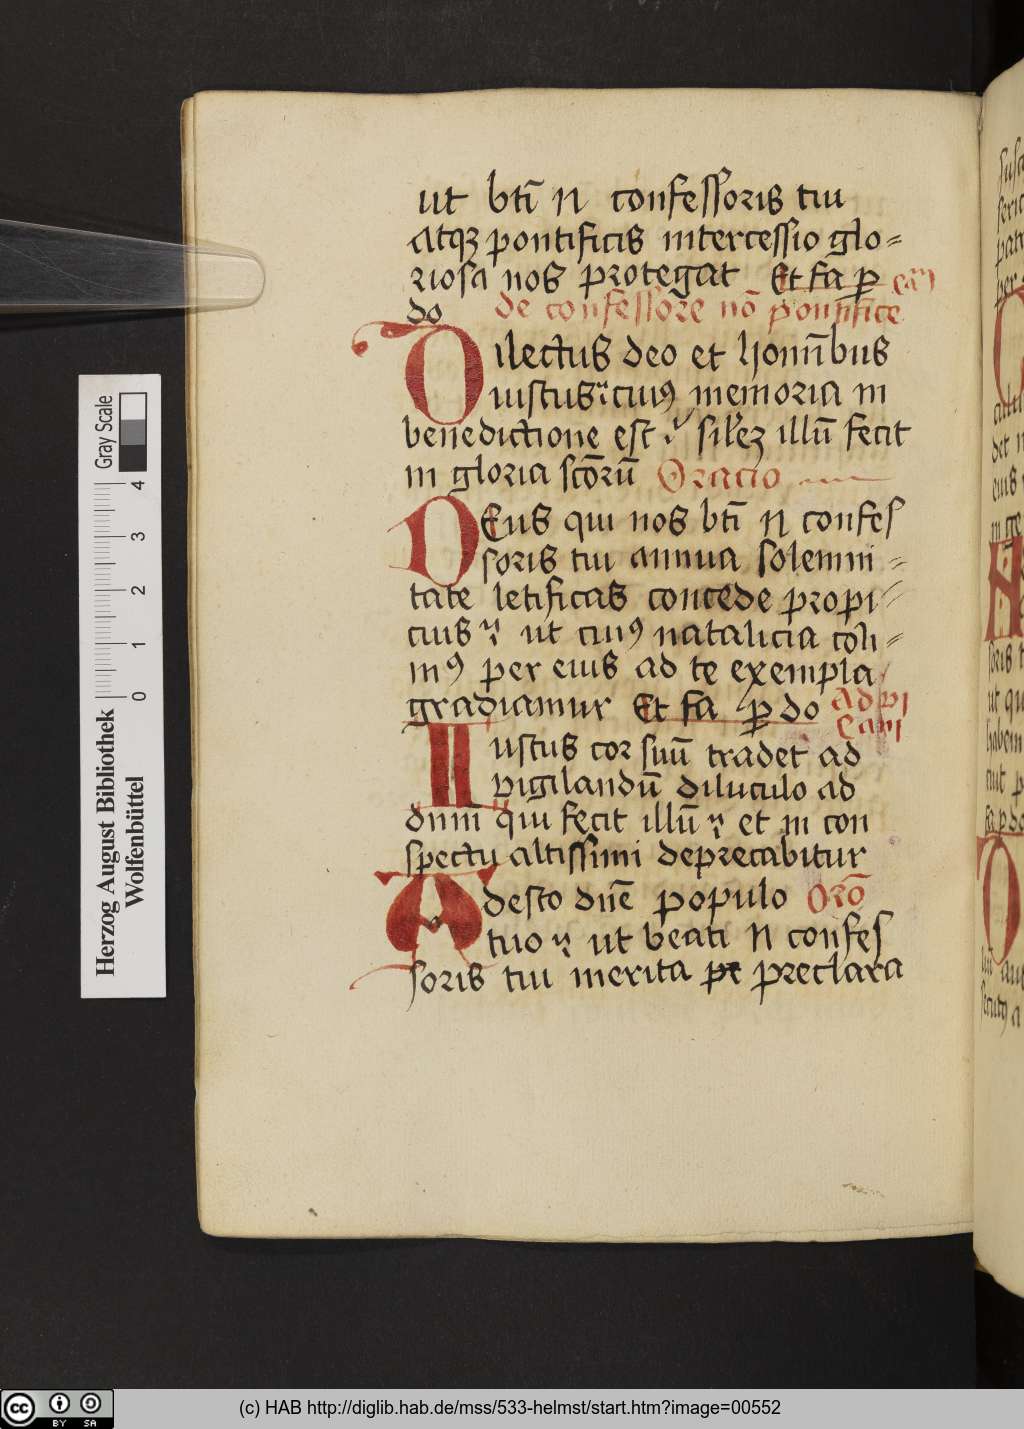 ut bti̅ N confessoris tui
atqꝫ pontificis intercessio glo=
riosa nos protegat Et fa p̲ cam̅
do de confessore no̅ pontifice
Dilectus deo et homi̅bus
iustus ⁊ cuiꝰ memoria in
benedictione est ⁊ sil'ez illu̅ fecit
in gloria sco̅ru̅ Oracio
DEus qui nos bti̅ N confes
soris tui annua solemni=
tate letificas concede propi=
cius ⁊ ut cuiꝰ natalicia coli=
mꝰ per eius ad te exempla
gradiamur Et fa p do ad pi
cam
Iustus cor suu̅ tradet ad
vigilandu̅ diluculo ad
dnm̅ qui fecit illu̅ ⁊ et in con
spectu altissimi deprecabitur
Adesto dne̅ populo Oro̅
tuo ⁊ ut beati N confes
soris tui merita pe preclara
Herzog August Bibliothek
Wolfenbüttel
0 1 2 3 4
Gray Scale
cc BY SA
(c) HAB http://diglib.hab.de/mss/533-helmst/start.htm?image=00552